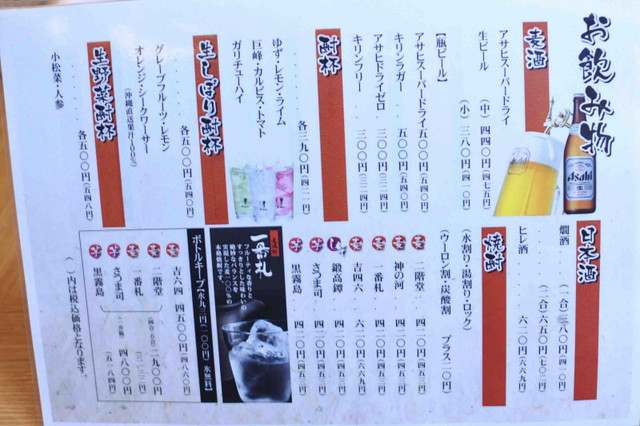 お飲み物
麦酒
アサヒスーパードライ
生ビール
(中) 四四〇円(四七五円)
(小) 三八〇円(四一〇円)
【瓶ビール】
アサヒスーパードライ 五〇〇円(五四〇円)
キリンラガー 五〇〇円(五四〇円)
アサヒドライゼロ 三〇〇円(三二四円)
キリンフリー 三〇〇円(三二四円)
Asahi
酎杯
ゆず・レモン・ライム
巨峰・カルピス・トマト
ガリチューハイ
各三九〇円(四二一円)
生しぼり酎杯
グレープフルーツ・レモン
オレンジ・シークワーサー
(沖縄直送果汁100%)
各五〇〇円(五四〇円)
生野菜酎杯
小松菜・人参
各五〇〇円(五四八円)
日本酒
燗酒
(一合) 三八〇円(四一〇円)
(二合) 六五〇円(七〇二円)
ヒレ酒 六二〇円(六六九円)
焼酎
(水割り・湯割り・ロック)
(ウーロン割・炭酸割 プラス二〇円)
麦 二階堂 四二〇円(四五三円)
麦 神の河 四二〇円(四五三円)
麦 一番札 四二〇円(四五三円)
麦 吉四六 六二〇円(六六九円)
鍛高譚 四二〇円(四五三円)
芋 さつま司 四二〇円(四五三円)
芋 黒霧島 四二〇円(四五三円)
一番札
フルーティな香りと
すっきりとした味わいの
絶妙なバランスを
実現した麦100%の
本格焼酎です。
ボトルキープ【水九三円(一〇〇円) 氷無料】
麦 吉四六
麦 二階堂
麦 一番札
芋 さつま司
芋 黒霧島
( )内は税込価格となります。